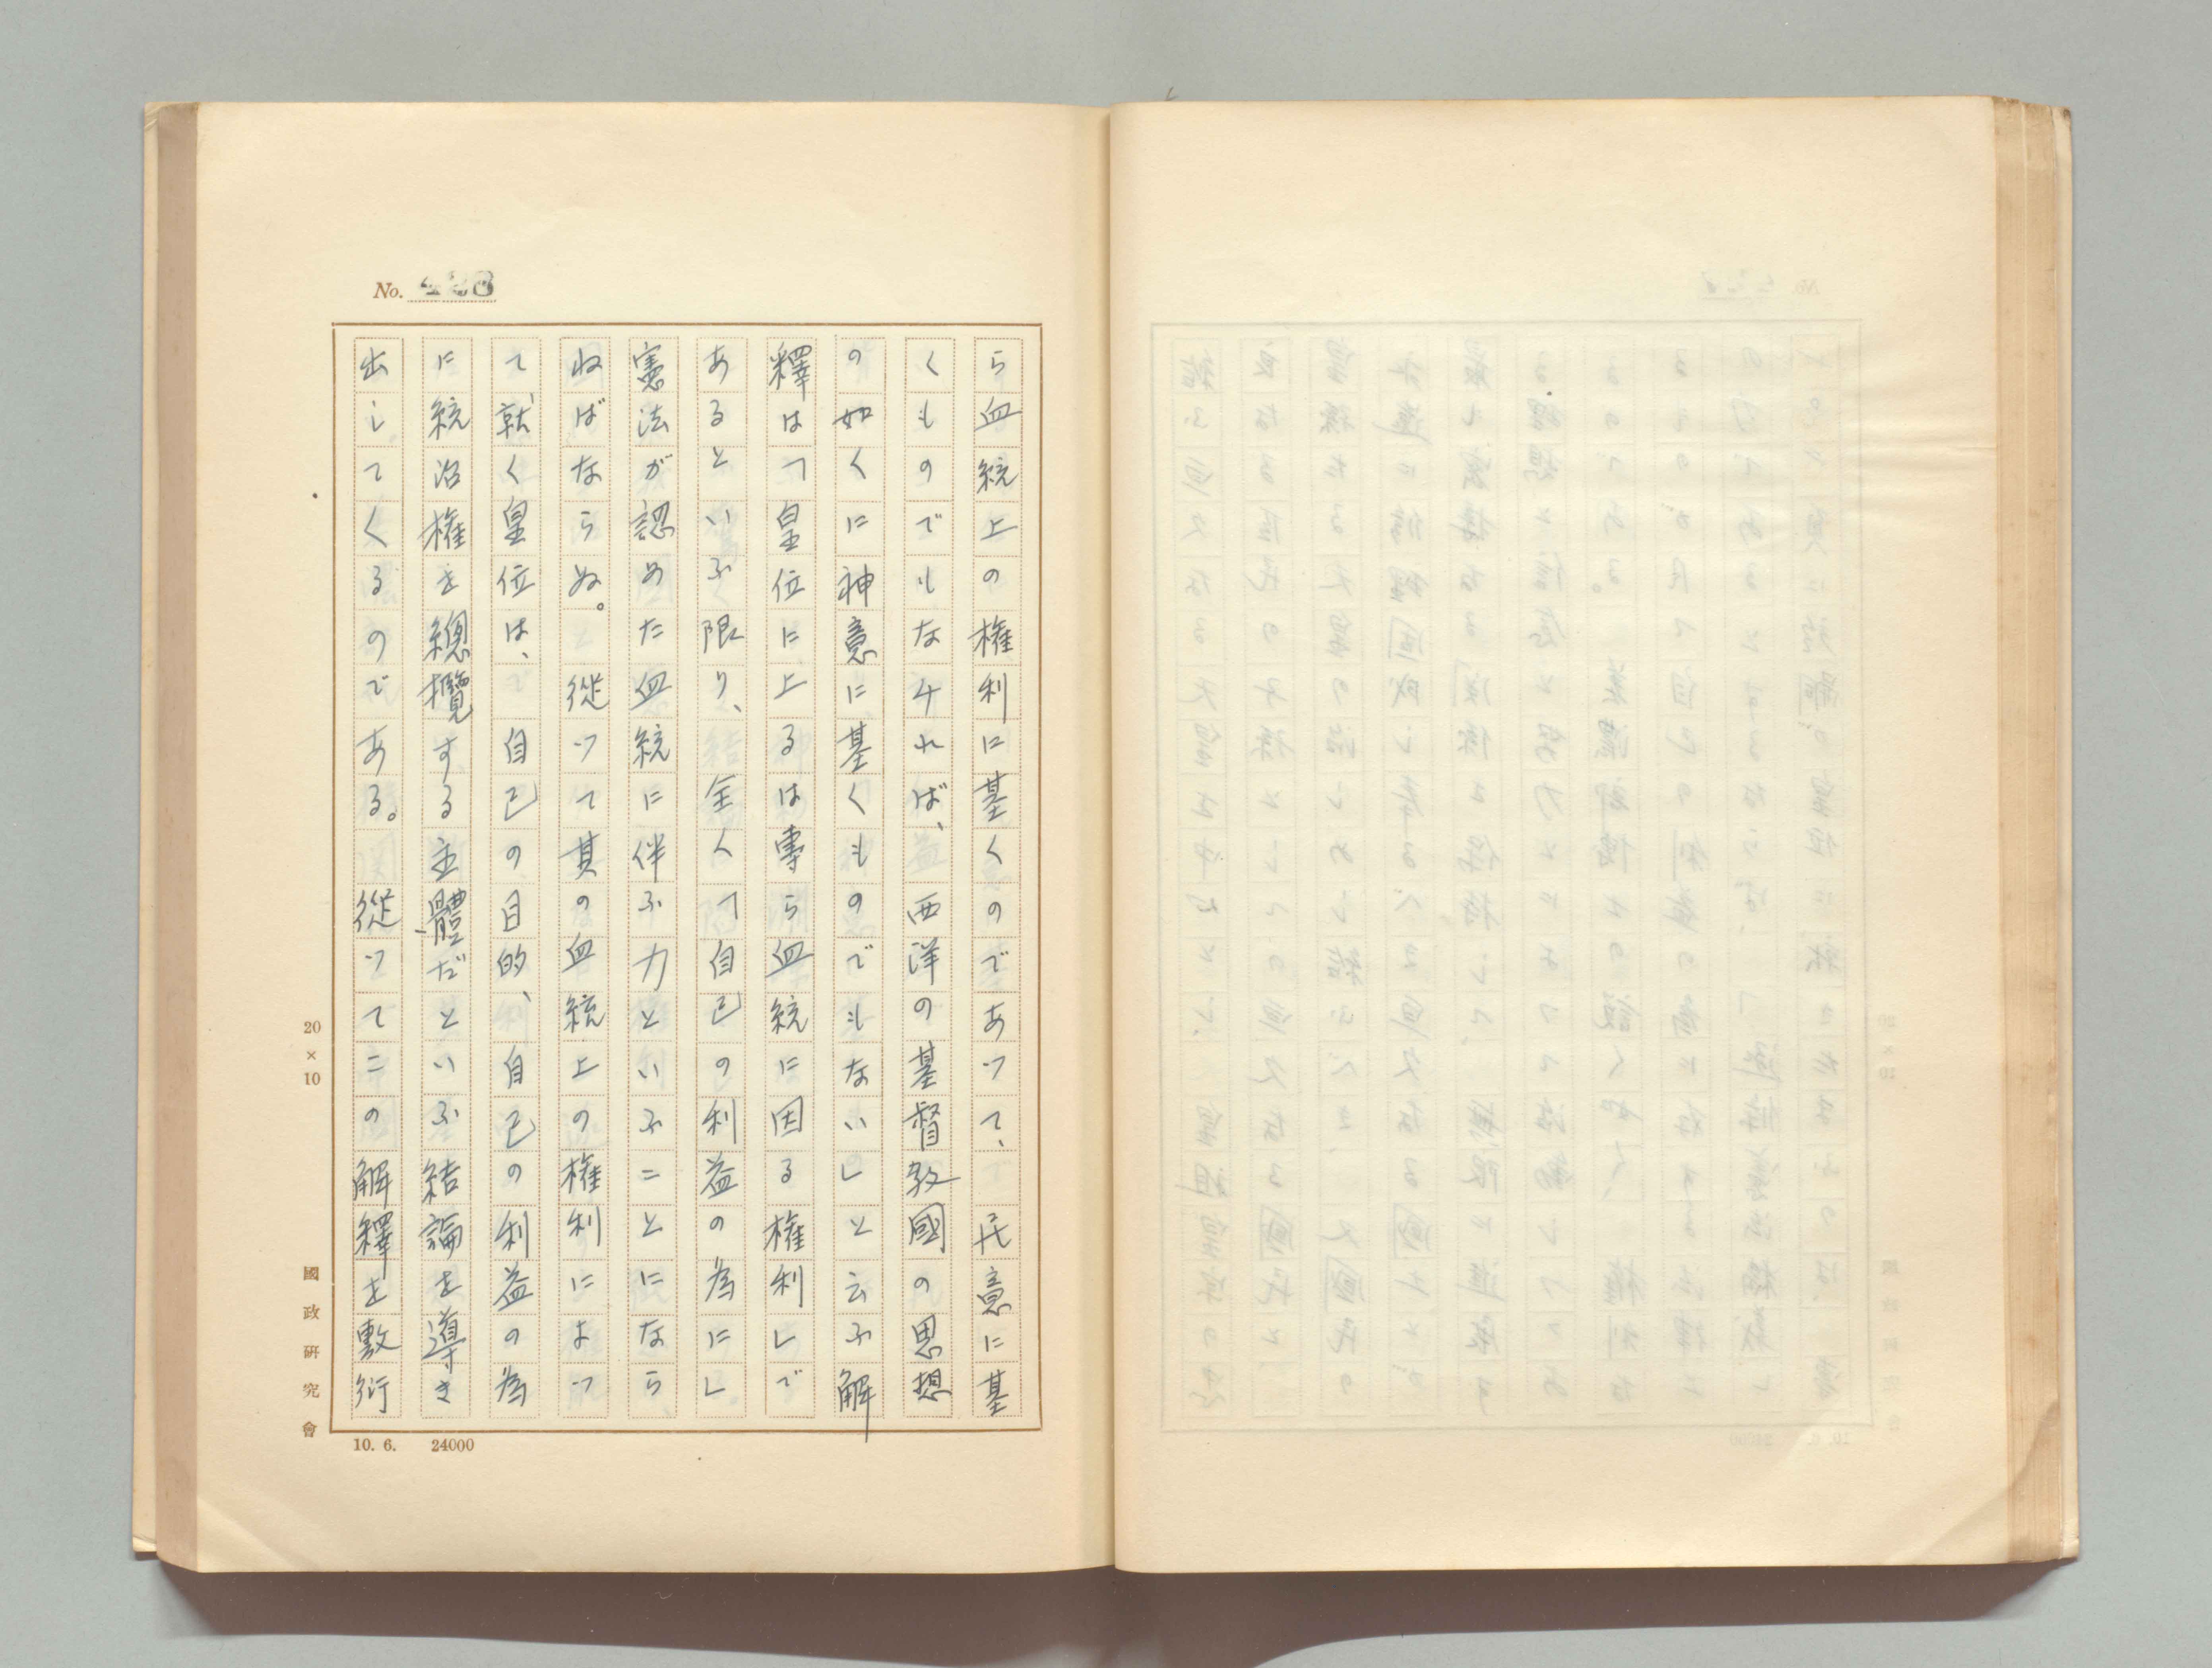 No. 428
ら血統上の権利に基くのであつて、民意に基
くものでもなければ、西洋の基督教國の思想
の如くに神意に基くものでもない」と云ふ解
釋は「皇位に上るは專ら血統に因る権利」で
あるといふ限り、全く「自己の利益の為に」
憲法が認めた血統に伴ふ力といふことになら
ねばならぬ。從つて其の血統上の権利によつ
て、就く皇位は、自己の目的、自己の利益の為
に統治権を總攬する主體だといふ結論を導き
出してくるのである。從つてこの解釋を敷衍
20×10
國政研究會
10. 6. 24000